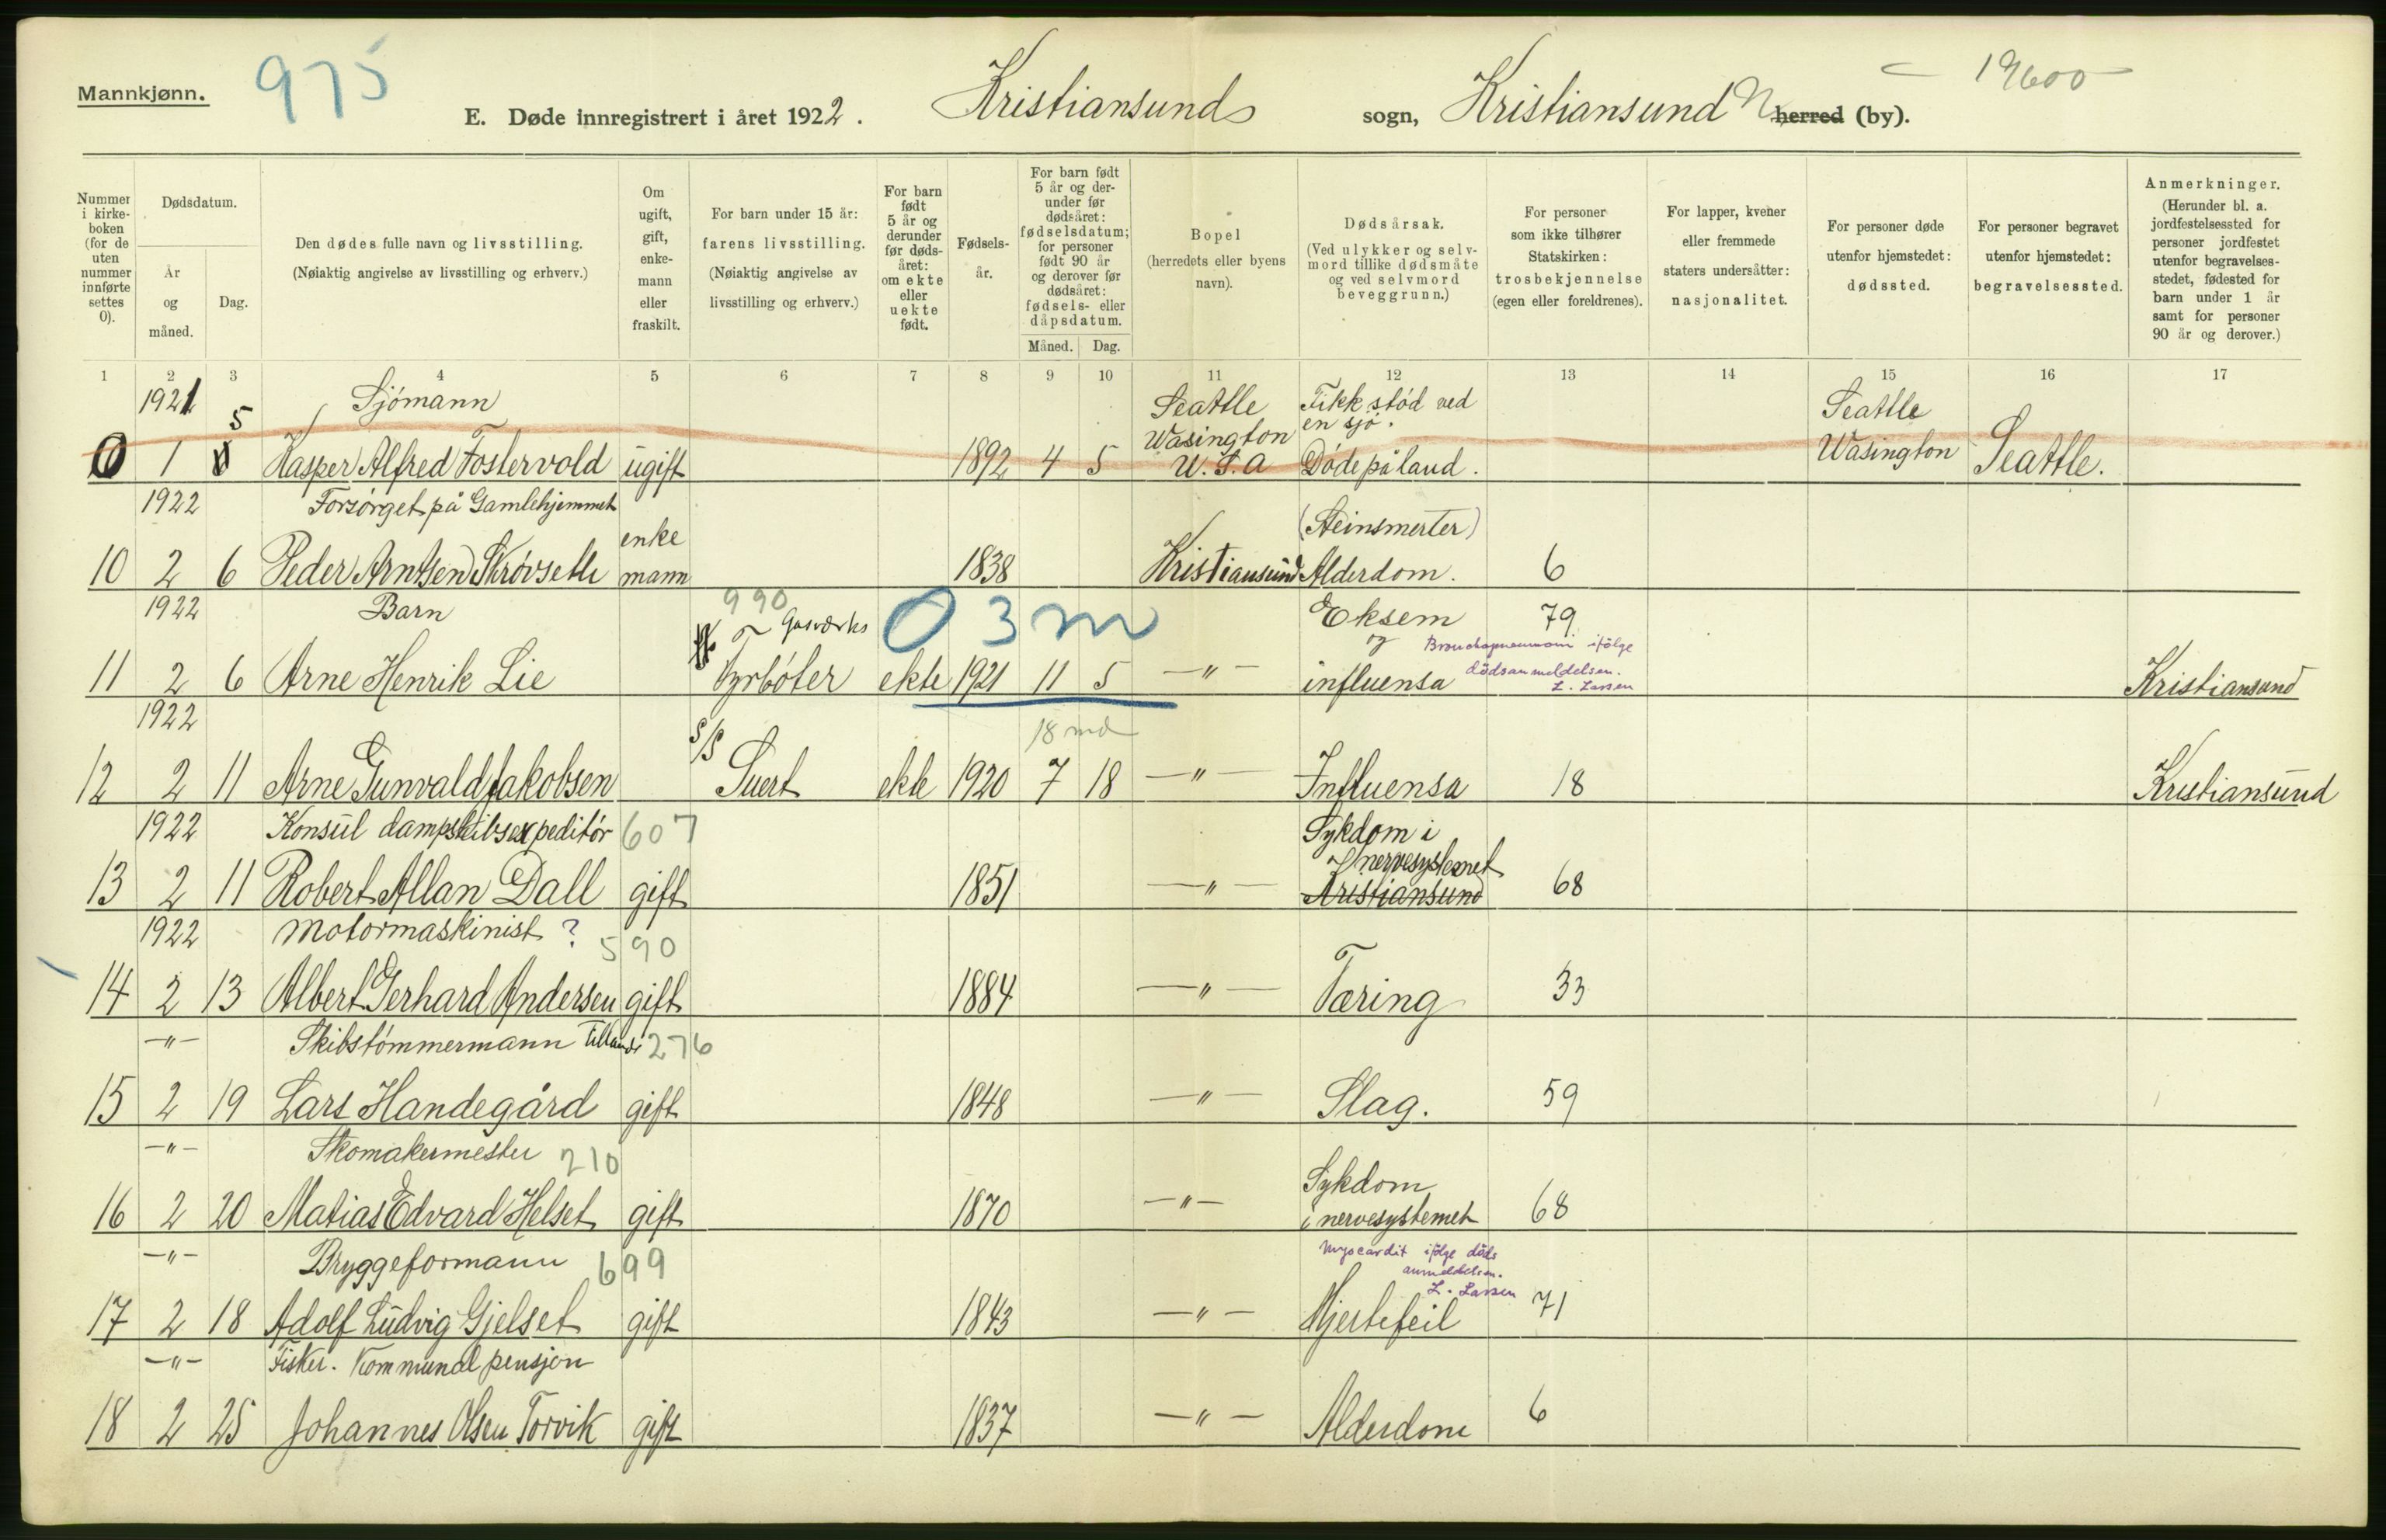 Mannkjønn. 975 19600
E. Døde innregistrert i året 1922. Kristiansunds sogn, Kristiansund N herred (by).
Nummer i kirke-boken (for de uten nummer innførte settes 0).
Dødsdatum.
År og måned.
Dag.
Den dødes fulle navn og livsstilling.
(Nøiaktig angivelse av livsstilling og erhverv.)
Om ugift, gift, enke-mann eller fraskilt.
For barn under 15 år: farens livsstilling.
(Nøiaktig angivelse av livsstilling og erhverv.)
For barn født 5 år og derunder før døds-året: om ekte eller uekte født.
Fødsels-år.
For barn født 5 år og der-under før dødsåret: fødselsdatum; for personer født 90 år og derover før dødsåret: fødsels- eller dåpsdatum.
Måned. Dag.
Bopel (herredets eller byens navn).
Dødsårsak.
(Ved ulykker og selv-mord tillike dødsmåte og ved selvmord beveggrunn.)
For personer som ikke tilhører Statskirken: trosbekjennelse (egen eller foreldrenes).
For lapper, kvener eller fremmede staters undersåtter: nasjonalitet.
For personer døde utenfor hjemstedet: dødssted.
For personer begravet utenfor hjemstedet: begravelsessted.
Anmerkninger.
(Herunder bl. a. jordfestelsessted for personer jordfestet utenfor begravelses-stedet, fødested for barn under 1 år samt for personer 90 år og derover.)
1 2 3 4 5 6 7 8 9 10 11 12 13 14 15 16 17
1921 5 Sjómann Seattle Fikk stód ved Seattle
Wasington en sjó.
0 1 Kasper Alfred Fostervold ugift 1892 4 5 U.S.A Dóde på land. Wasington Seattle.
1922 Forsórget på Gamlehjemmet enke (Steinsmerter)
10 2 6 Peder Arntsen Skrøvseth mann 1838 Kristiansund Alderdom. 6
1922 Barn 990 Gasværks 0 3 m Eksem 79
og Bronchopneumoni ifölge
11 2 6 Arne Henrik Lie Fyrbóter ekte 1921 11 5 —"— influensa dödsanmeldelsen. Kristiansund
L. Larsen
1922 S/S 18 md
12 2 11 Arne Gunvald Jakobsen Suert ekte 1920 7 18 —"— Influensa 18 Kristiansund
1922 Konsul dampskibsexpeditór 607 Sykdom i
nervesystemet
13 2 11 Robert Allan Dall gift 1851 —"— Kristiansund 68
1922 Motormaskinist ? 590
14 2 13 Albert Gerhard Andersen gift 1884 —"— Tæring 33
—"— Skibstómmermann tillands 276
15 2 19 Lars Handegård gift 1848 —"— Slag. 59
—"— Skomakermester 210 Sykdom
16 2 20 Matias Edvard Helset gift 1870 —"— i nervesystemet 68
—"— Bryggeformann 699 Myocardit ifölge döds
anmeldelsen.
L. Larsen
17 2 18 Adolf Ludvig Gjelset gift 1843 —"— Hjertefeil 71
—"— Fisker. Kommunal pensjon
18 2 25 Johannes Olsen Torvik gift 1837 —"— Alderdom 6